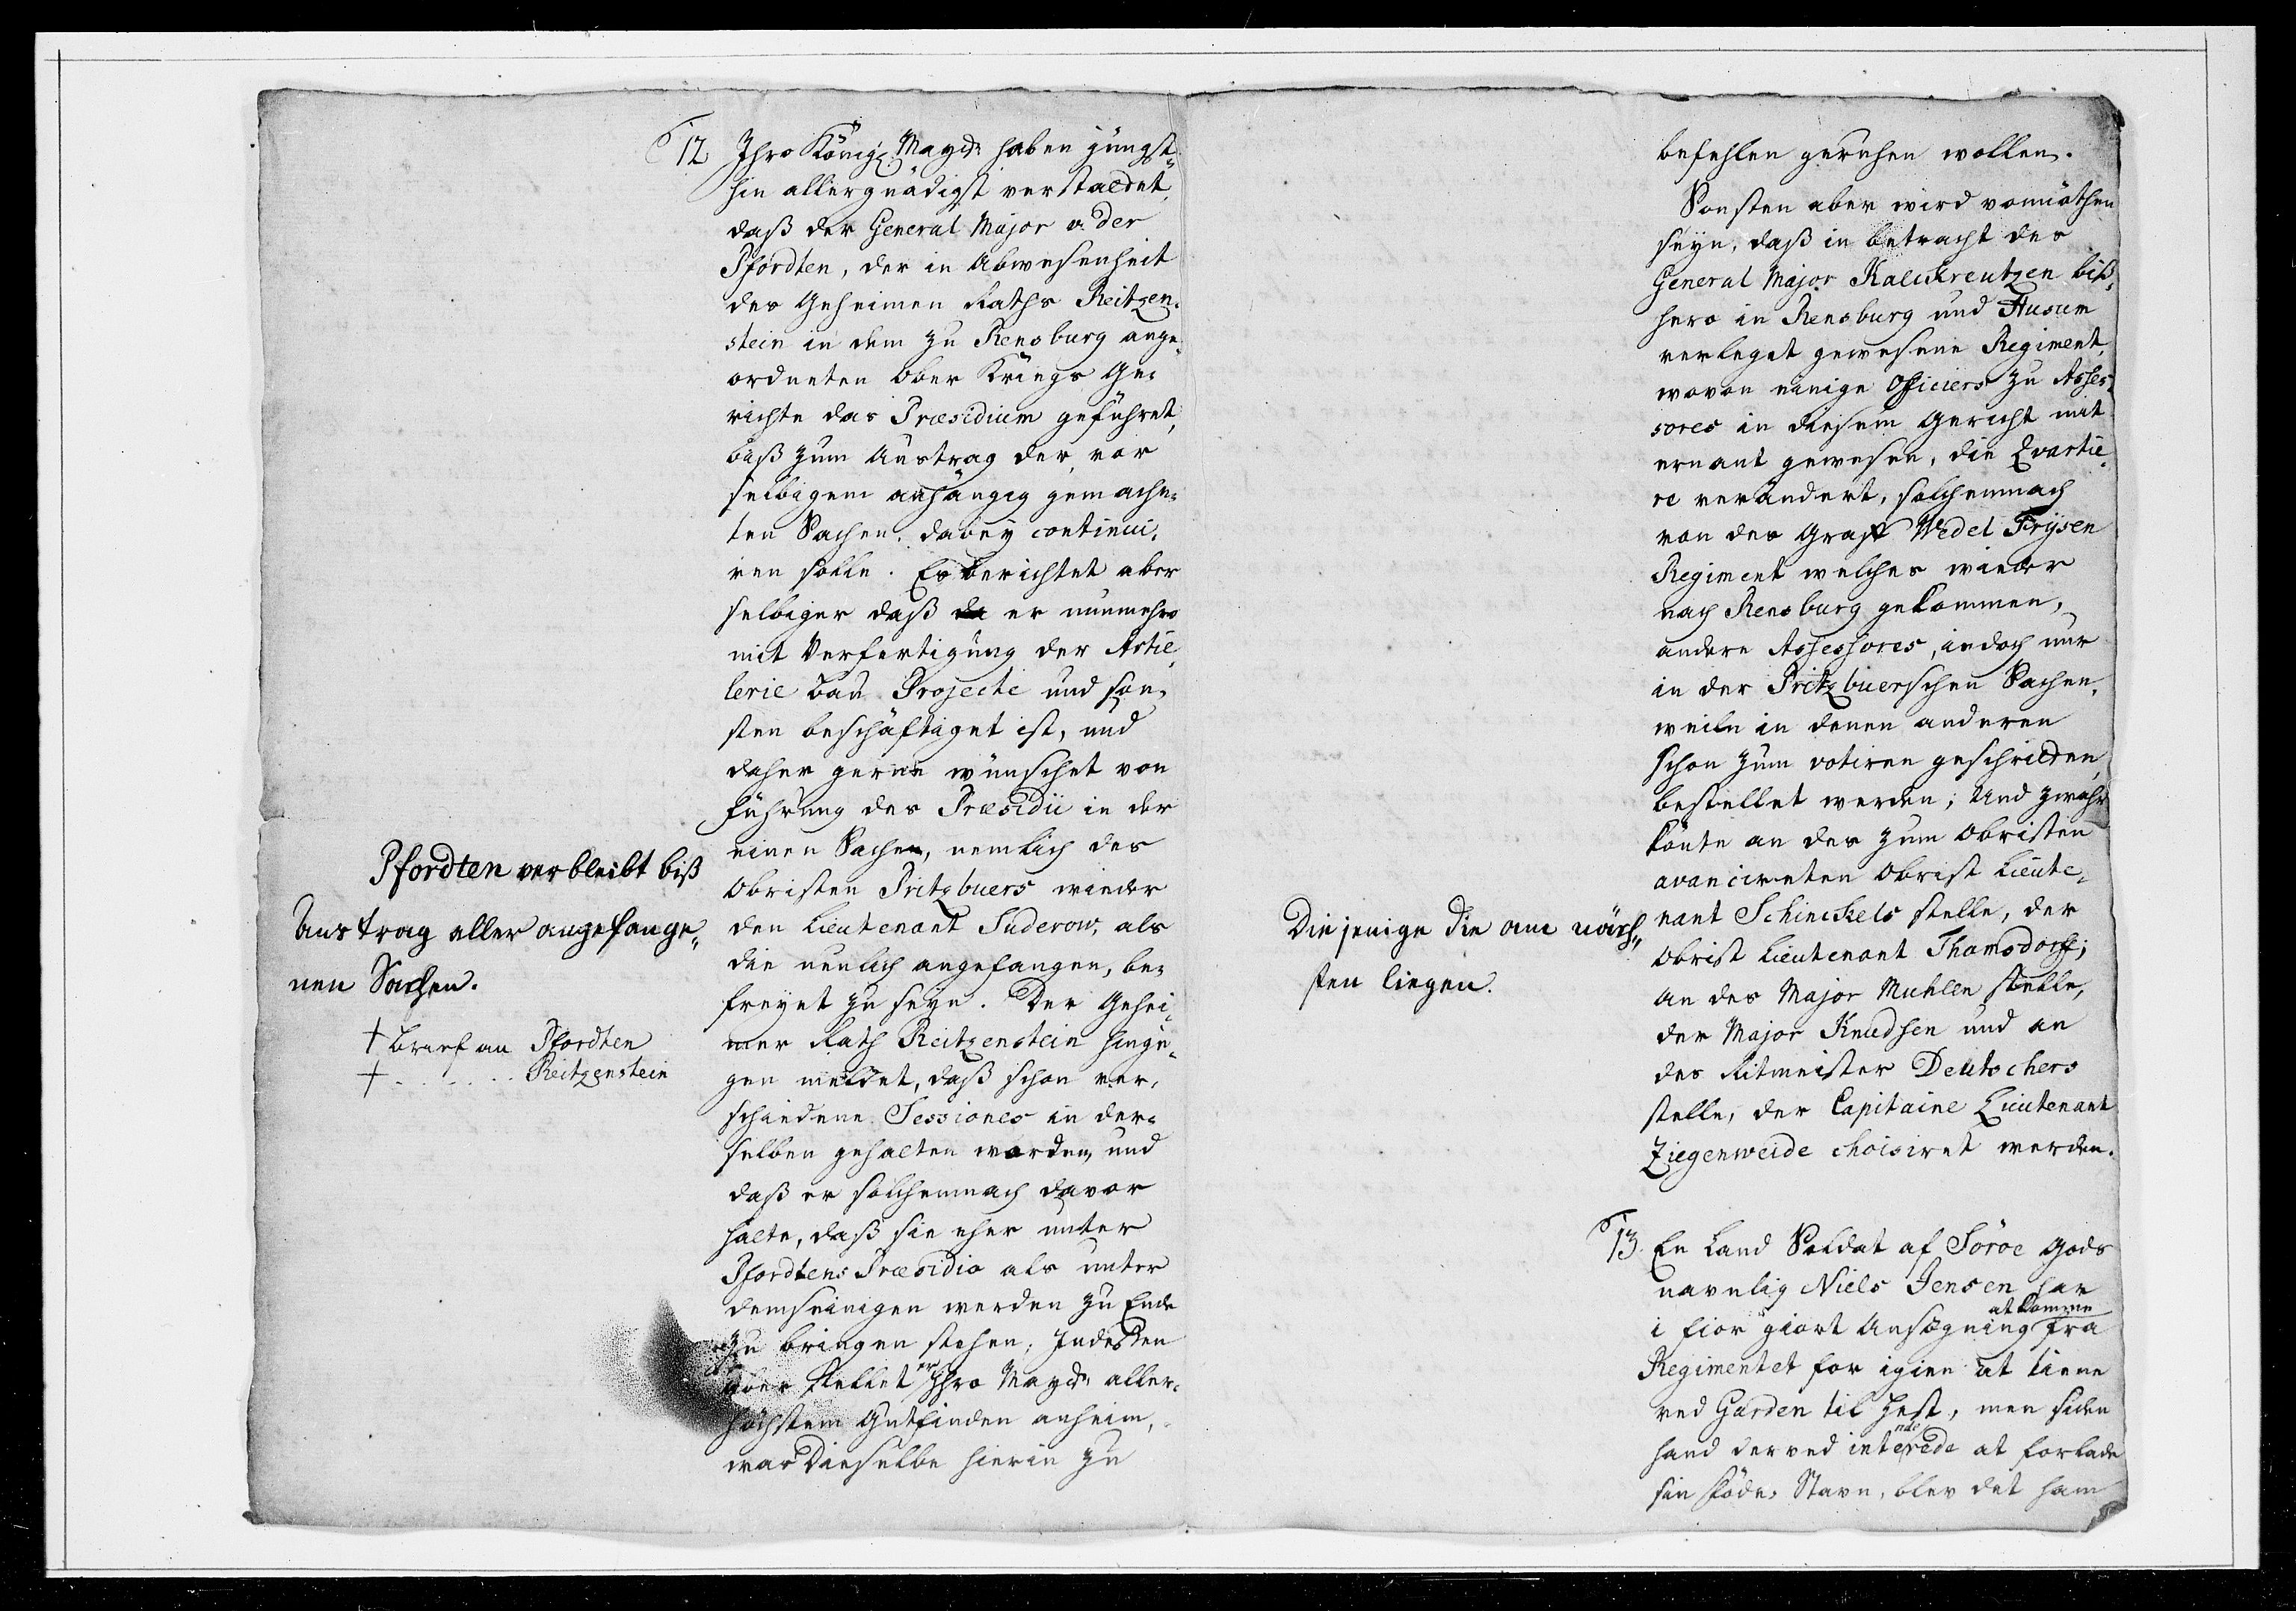 12 Ihro Königl. Mayst. haben jüngst„
hin allergnädigst verstattet,
daß der General Major v. der
Pfordten, der in Abwesenheit
des Geheimen Raths Reitzen„
stein in dem zu Rensburg ange„
ordneten Ober Kriegs Ge„
richte das Præsidium geführet,
biß zum Austrag der, vor
selbigem anhängig gemach„
ten Sachen, dabey continui„
ren solle. Es berichtet aber
selbiger daß er nunmehro
mit Verfertigung der Artil„
lerie bau Projecte und son„
sten beschäftiget ist, und
daher gerne wünschet von
Führung des Præsidii in der
einen Sachen, nemlich des
Obristen Pritzbuers wieder
den Lieutenant Suderow, als
die neulich angefangen, be„
freyet zu seyn. Der Gehei„
mer Rath Reitzenstein hinge„
gen meldet, daß schon ver„
schiedene Sessiones in der„
selben gehalten worden, und
daß er solchemnach davor
halte, daß sie eher unter
Pfordtens Præsidio als unter
demseinigen werden zu Ende
zu bringen stehen; Indessen
aber stellet er Ihro Mayst. aller„
höchstem Gutfinden anheim,
was Dieselbe hierin zu
Pfordten verbleibt biß
Austrag aller angefange„
nen Sachen.
† Brief an Pfordten
† . . . . . . Reitzenstein
befehlen geruhen wollen.
Sonsten aber wird vonnöthen
seyn, daß in betracht des
General Major Kalckreutzen biß„
hero in Rensburg und Husum
verleget gewesene Regiment,
wovon einige Officiers zu Asses„
sores in diesem Gericht mit
ernant gewesen, die Quartie„
re verändert, solchemnach
von des Graff Wedel Frysen
Regiment welches wieder
nach Rensburg gekommen,
andere Assessores, iedoch nur
in der Pritzbuerschen Sachen,
weiln in denen anderen
schon zum votiren geschritten,
bestellet werden; Und zwahr
könte an des zum Obristen
avancireten Obrist Lieute„
nant Schinckels stelle, der
Obrist Lieutenant Thamsdorff;
an des Major Muhlen stelle,
der Major Knudsen und an
des Ritmeister Deutschers
stelle, der Capitaine Lieutenant
Ziegenweide choisiret werden.
Die jenige die am näch„
sten liegen.
13. En Land Soldat af Soröe Gods
navnlig Niels Jensen har
i fior giort Ansøgning at komme fra
Regimentet for igien at tiene
ved Garden til Hest, men siden
hand derved intenderede at forlade
sin føde„ Stavn, blev det ham